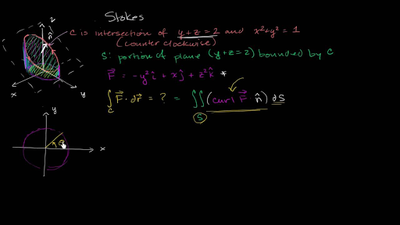 Stokes
C is intersection of y+z=2 and x²+y²=1
(counter clockwise)
S: portion of plane (y+z=2) bounded by C
F⃗ = -y² î + x ĵ + z² k̂ *
∫_C F⃗ · dr⃗ = ? = ∬_S (curl F⃗ · n̂) dS
z
n̂
x
y
y
θ
x